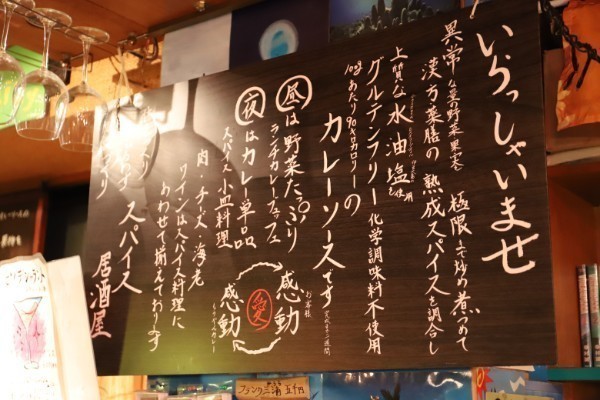 いらっしゃいませ
異常な量の野菜果実を極限まで炒め煮つめて
漢方薬膳の熟成スパイスを調合し
上質な水油塩を使用
グルテンフリー化学調味料不使用
100gあたり90キロカロリーの
カレーソースです
昼は野菜たっぷり
ランチカレーブッフェ
夜はカレー単品
スパイス小皿料理
肉・チーズ・海老
ワインはスパイス料理に
あわせて揃えております
スパイス
居酒屋
お客様
感動
愛
感動